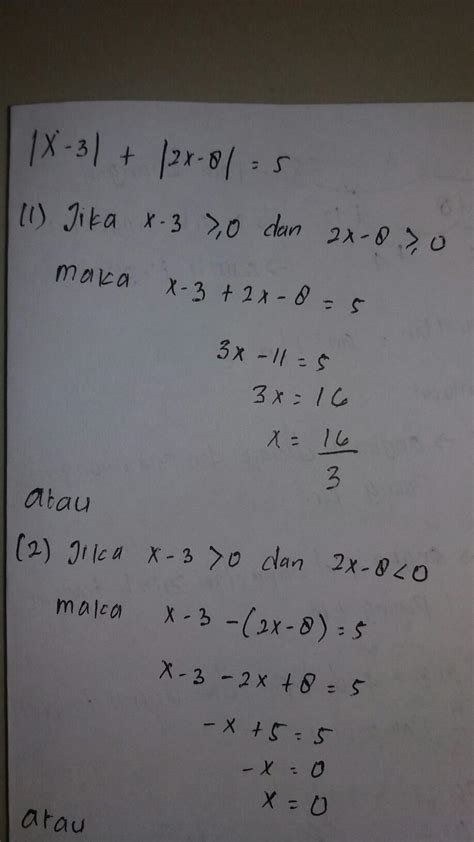 |x-3| + |2x-8| = 5
(1) Jika x-3 ≥ 0 dan 2x-8 ≥ 0
maka x-3 + 2x-8 = 5
3x - 11 = 5
3x = 16
x = 16/3
atau
(2) Jika x-3 > 0 dan 2x-8 < 0
maka x-3 - (2x-8) = 5
x-3 - 2x + 8 = 5
-x + 5 = 5
-x = 0
x = 0
atau